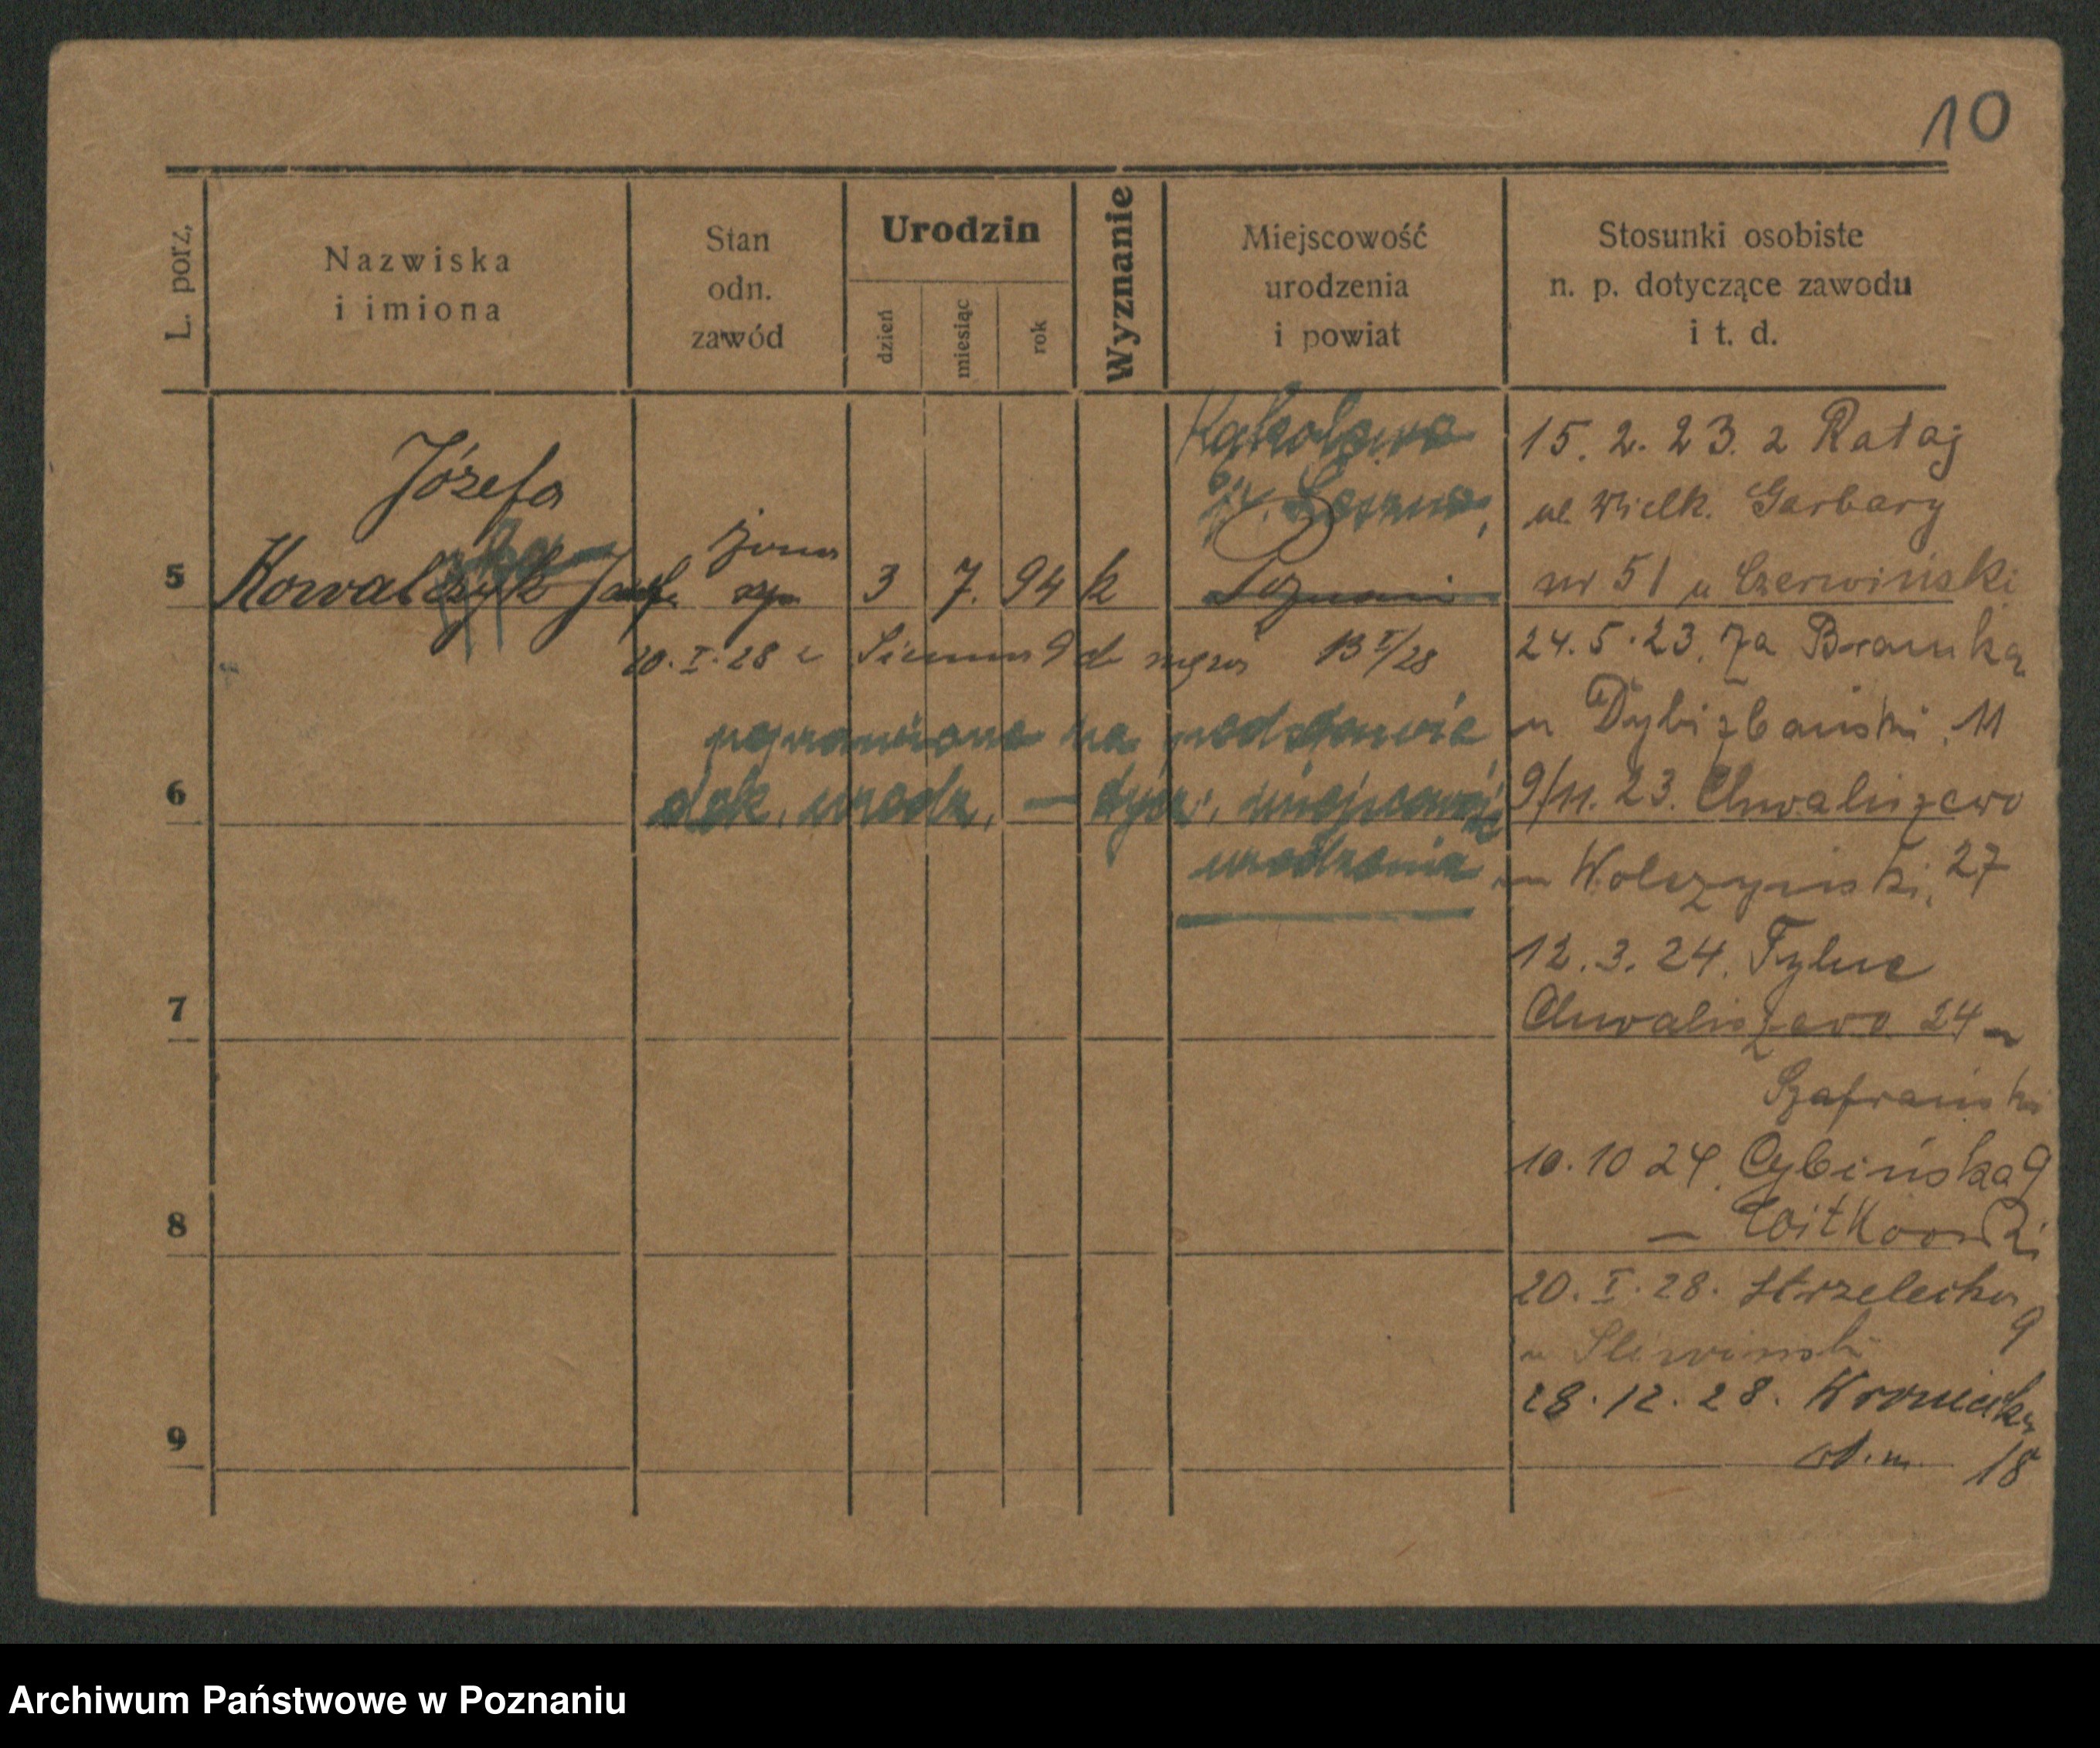 10
L. porz.
Nazwiska
i imiona
Stan
odn.
zawód
Urodzin
dzień
miesiąc
rok
Wyznanie
Miejscowość
urodzenia
i powiat
Stosunki osobiste
n. p. dotyczące zawodu
i t. d.
Józefa
5 Kowalczyk żona 3 7. 94 k
Kąkolewo
Leszno,
Poznań
20. I. 28 9 do męża 13 I/28
na podstawie
dok. urodz. — dycz. miejscowość
urodzenia
6
7
8
9
15. 2. 23. z Rataj
ul. Wielk. Garbary
nr 51 u Czerwiński
24. 5. 23. Za Bramką
u Dybizbański. 11
9/11. 23. Chwaliszewo
Wolszyński, 27
12. 3. 24. Tylne
Chwaliszewo 24
Szafrański
10. 10 24. Cybińska 9
— Witkowski
20. I. 28. Strzelecka 9
u Śliwiński
28. 12. 28. 
18
Archiwum Państwowe w Poznaniu